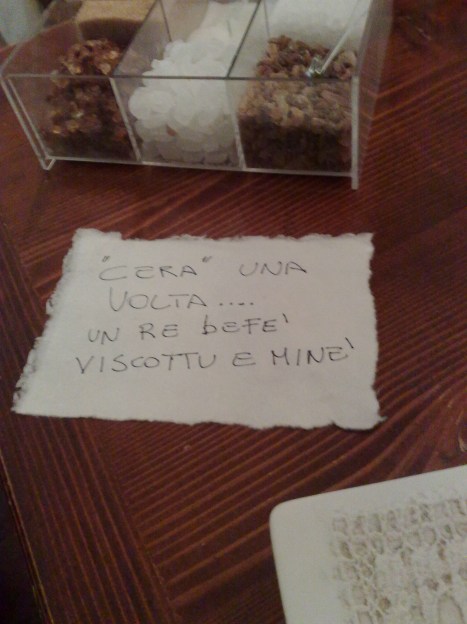 "CERA" UNA
VOLTA....
UN RE BEFE'
VISCOTTU E MINE'